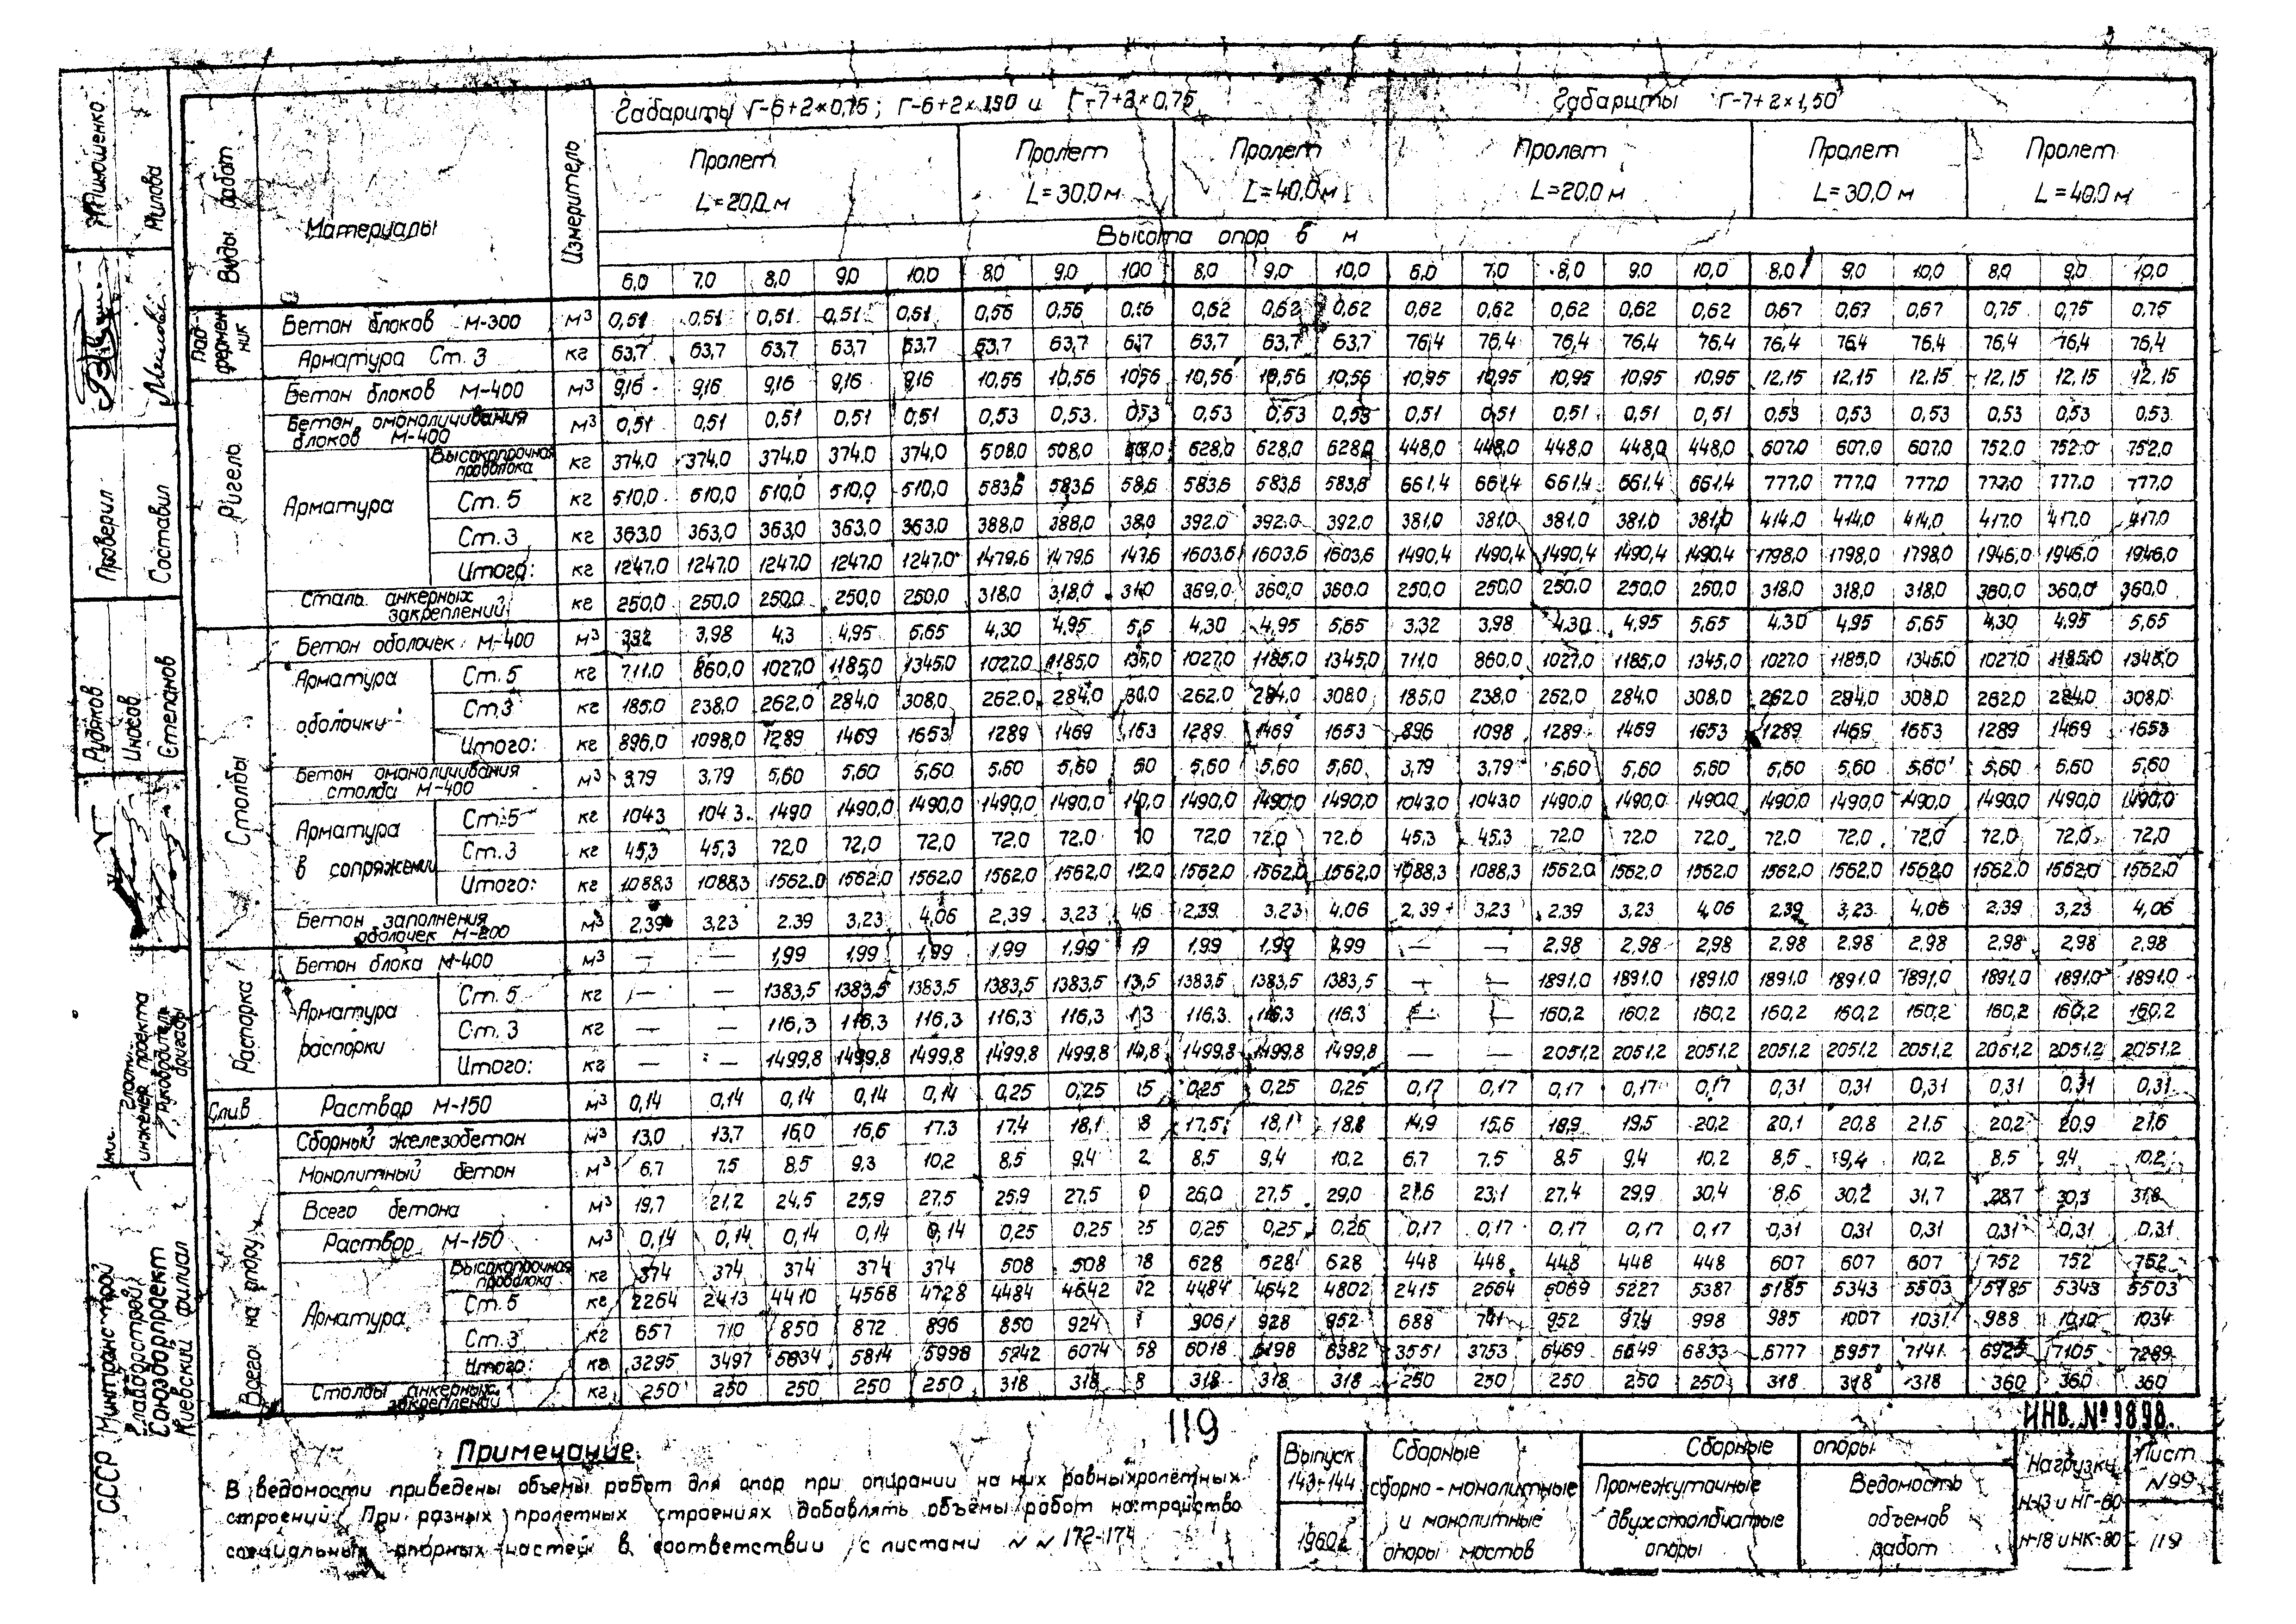 Габариты Г-6+2×0,75; Г-6+2×1,50 и Г-7+2×0,75 Габариты Г-7+2×1,50
Виды работ Материалы Измеритель
Пролет L=20,0 м Пролет L=30,0 м Пролет L=40,0 м Пролет L=20,0 м Пролет L=30,0 м Пролет L=40,0 м
Высота опор в м
6,0 7,0 8,0 9,0 10,0 8,0 9,0 100 8,0 9,0 10,0 6,0 7,0 8,0 9,0 10,0 8,0 9,0 10,0 8,0 9,0 10,0
Подферменник
Бетон блоков М-300 м³ 0,51 0,51 0,51 0,51 0,51 0,56 0,56 0,56 0,62 0,62 0,62 0,62 0,62 0,62 0,62 0,62 0,67 0,67 0,67 0,75 0,75 0,75
Арматура Ст. 3 кг 63,7 63,7 63,7 63,7 63,7 63,7 63,7 63,7 63,7 63,7 76,4 76,4 76,4 76,4 76,4 76,4 76,4 76,4 76,4 76,4 76,4
Ригель
Бетон блоков М-400 м³ 9,16 9,16 9,16 9,16 9,16 10,56 10,56 10,56 10,56 10,56 10,56 10,95 10,95 10,95 10,95 10,95 12,15 12,15 12,15 12,15 12,15 12,15
Бетон омоноличивания блоков М-400 м³ 0,51 0,51 0,51 0,51 0,51 0,53 0,53 0,53 0,53 0,53 0,53 0,51 0,51 0,51 0,51 0,51 0,53 0,53 0,53 0,53 0,53 0,53
Арматура
Высокопрочная проволока кг 374,0 374,0 374,0 374,0 374,0 508,0 508,0 628,0 628,0 628,0 448,0 448,0 448,0 448,0 448,0 607,0 607,0 607,0 752,0 752,0 752,0
Ст. 5 кг 510,0 510,0 510,0 510,0 510,0 583,6 583,6 58,6 583,6 583,6 583,6 661,4 661,4 661,4 661,4 661,4 777,0 777,0 777,0 777,0 777,0 777,0
Ст. 3 кг 363,0 363,0 363,0 363,0 363,0 388,0 388,0 38,0 392,0 392,0 392,0 381,0 381,0 381,0 381,0 381,0 414,0 414,0 414,0 417,0 417,0 417,0
Итого: кг 1247,0 1247,0 1247,0 1247,0 1247,0 1479,6 1479,6 147,6 1603,6 1603,6 1603,6 1490,4 1490,4 1490,4 1490,4 1490,4 1798,0 1798,0 1798,0 1946,0 1946,0 1946,0
Сталь анкерных закреплений кг 250,0 250,0 250,0 250,0 250,0 318,0 318,0 31,0 360,0 360,0 250,0 250,0 250,0 250,0 250,0 318,0 318,0 318,0 360,0 360,0 360,0
Столбы
Бетон оболочек М-400 м³ 3,32 3,98 4,3 4,95 5,65 4,30 4,95 5,5 4,30 4,95 5,65 3,32 3,98 4,30 4,95 5,65 4,30 4,95 5,65 4,30 4,95 5,65
Арматура оболочки
Ст. 5 кг 711,0 860,0 1027,0 1185,0 1345,0 1027,0 1185,0 135,0 1027,0 1185,0 1345,0 711,0 860,0 1027,0 1185,0 1345,0 1027,0 1185,0 1345,0 1027,0 1185,0 1345,0
Ст.3 кг 185,0 238,0 262,0 284,0 308,0 262,0 284,0 30,0 262,0 284,0 308,0 185,0 238,0 262,0 284,0 308,0 262,0 284,0 308,0 262,0 284,0 308,0
Итого: кг 896,0 1098,0 1289 1469 1653 1289 1469 153 1289 1469 1653 896 1098 1289 1469 1653 1289 1469 1653 1289 1469 1653
Бетон омоноличивания столба М-400 м³ 3,79 3,79 5,60 5,60 5,60 5,60 5,60 60 5,60 5,60 5,60 3,79 3,79 5,60 5,60 5,60 5,60 5,60 5,60 5,60 5,60 5,60
Арматура в сопряжении
Ст. 5 кг 1043 1043. 1490 1490,0 1490,0 1490,0 1490,0 140,0 1490,0 1490,0 1490,0 1043,0 1043,0 1490,0 1490,0 1490,0 1490,0 1490,0 1490,0 1490,0 1490,0 1490,0
Ст.3 кг 45,3 45,3 72,0 72,0 72,0 72,0 72,0 72,0 72,0 72,0 45,3 45,3 72,0 72,0 72,0 72,0 72,0 72,0 72,0 72,0 72,0
Итого: кг 1088,3 1088,3 1562,0 1562,0 1562,0 1562,0 1562,0 152,0 1562,0 1562,0 1562,0 1088,3 1088,3 1562,0 1562,0 1562,0 1562,0 1562,0 1562,0 1562,0 1562,0 1562,0
Бетон заполнения оболочек М-200 м³ 2,39 3,23 2,39 3,23 4,06 2,39 3,23 4,6 2,39 3,23 4,06 2,39 3,23 2,39 3,23 4,06 2,39 3,23 4,06 2,39 3,23 4,06
Распорка
Бетон блока М-400 м³ — — 1,99 1,99 1,99 1,99 1,99 19 1,99 1,99 — — 2,98 2,98 2,98 2,98 2,98 2,98 2,98 2,98 2,98
Арматура распорки
Ст. 5 кг — — 1383,5 1383,5 1383,5 1383,5 1383,5 13,5 1383,5 1383,5 1383,5 — — 1891,0 1891,0 1891,0 1891,0 1891,0 1891,0 1891,0 1891,0 1891,0
Ст. 3 кг — — 116,3 116,3 116,3 116,3 116,3 116,3 116,3 116,3 — — 160,2 160,2 160,2 160,2 160,2 160,2 160,2 160,2 160,2
Итого: кг — — 1499,8 1499,8 1499,8 1499,8 1499,8 14,8 1499,8 1499,8 1499,8 — — 2051,2 2051,2 2051,2 2051,2 2051,2 2051,2 2051,2 2051,2 2051,2
Слив Раствор М-150 м³ 0,14 0,14 0,14 0,14 0,14 0,25 0,25 25 0,25 0,25 0,25 0,17 0,17 0,17 0,17 0,17 0,31 0,31 0,31 0,31 0,31 0,31
Всего на опору
Сборный железобетон м³ 13,0 13,7 16,0 16,6 17,3 17,4 18,1 8 17,5 18,1 18,8 14,9 15,6 18,9 19,5 20,2 20,1 20,8 21,5 20,2 20,9 21,6
Монолитный бетон м³ 6,7 7,5 8,5 9,3 10,2 8,5 9,4 2 8,5 9,4 10,2 6,7 7,5 8,5 9,4 10,2 8,5 9,4 10,2 8,5 9,4 10,2
Всего бетона м³ 19,7 21,2 24,5 25,9 27,5 25,9 27,5 0 26,0 27,5 29,0 21,6 23,1 27,4 29,9 30,4 8,6 30,2 31,7 28,7 30,3 31,8
Раствор М-150 м³ 0,14 0,14 0,14 0,14 0,14 0,25 0,25 25 0,25 0,25 0,25 0,17 0,17 0,17 0,17 0,17 0,31 0,31 0,31 0,31 0,31 0,31
Арматура
Высокопрочная проволока кг 374 374 374 374 374 508 508 628 628 628 448 448 448 448 448 607 607 607 752 752 752
Ст. 5 кг 2264 2413 4410 4568 4728 4484 4642 02 4484 4642 4802 2415 2664 5069 5227 5387 5185 5343 5503 5185 5343 5503
Ст. 3 кг 657 710 850 872 896 850 924 906 928 952 688 741 952 974 998 985 1007 1031 988 1010 1034
Итого: кг 3295 3497 5634 5814 5998 5842 6074 58 6018 6198 6382 3551 3753 6469 6649 6833 6777 6957 7141 6925 7105 7289
Столбы анкерных закреплений кг 250 250 250 250 250 318 318 8 318 318 318 250 250 250 250 250 318 318 318 360 360 360
119
ИНВ. №9898.
Примечание:
В ведомости приведены объемы работ для опор при опирании на них равныхпролетных
строений. При разных пролетных строениях добавлять объемы работ на тройство
социальных опорных частей в соответствии с листами № № 172-174
Выпуск 143-144
1960г.
Сборные сборно-монолитные и монолитные опоры мостов
Сборные опоры
Промежуточные двухстолбчатые опоры
Ведомость объемов работ
Нагрузки Н-13 и НГ-60 Н-18 и НК-80
Лист №99
119
СССР Минтрансстрой
Главдорстрой
Союздорпроект
Киевский филиал
инженер проекта
Руководитель бригады
Рудяков
Иносов
Степанов
Проверил
Составил
Тимошенко
Милова